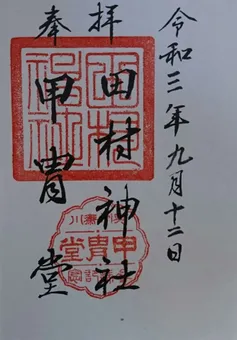 令和三年九月十二日
拝 田村神社
奉 甲冑堂
甲冑堂